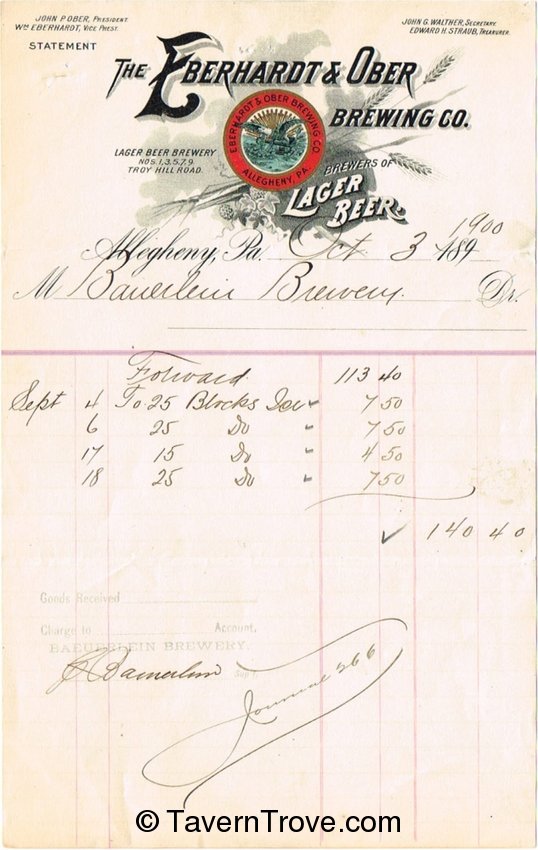 JOHN P. OBER, PRESIDENT.
WM EBERHARDT, VICE PREST.
STATEMENT
JOHN G. WALTHER, SECRETARY.
EDWARD H. STRAUB, TREASURER.
THE EBERHARDT & OBER
BREWING CO.
EBERHARDT & OBER BREWING CO.
ALLEGHENY, PA.
LAGER BEER BREWERY
NOS. 1, 3, 5, 7, 9.
TROY HILL ROAD.
BREWERS OF
LAGER
BEER.
1900
Allegheny, Pa. Oct 3 189
M Bauerlein Brewery. Dr.
Forward 113 40
Sept 4 To 25 Blocks Ice 7 50
6 25 Do 7 50
17 15 Do 4 50
18 25 Do 7 50
140 40
Goods Received
Charge to Account,
BAEUERLEIN BREWERY.
Bauerlein Sup't.
Journal 266
© TavernTrove.com